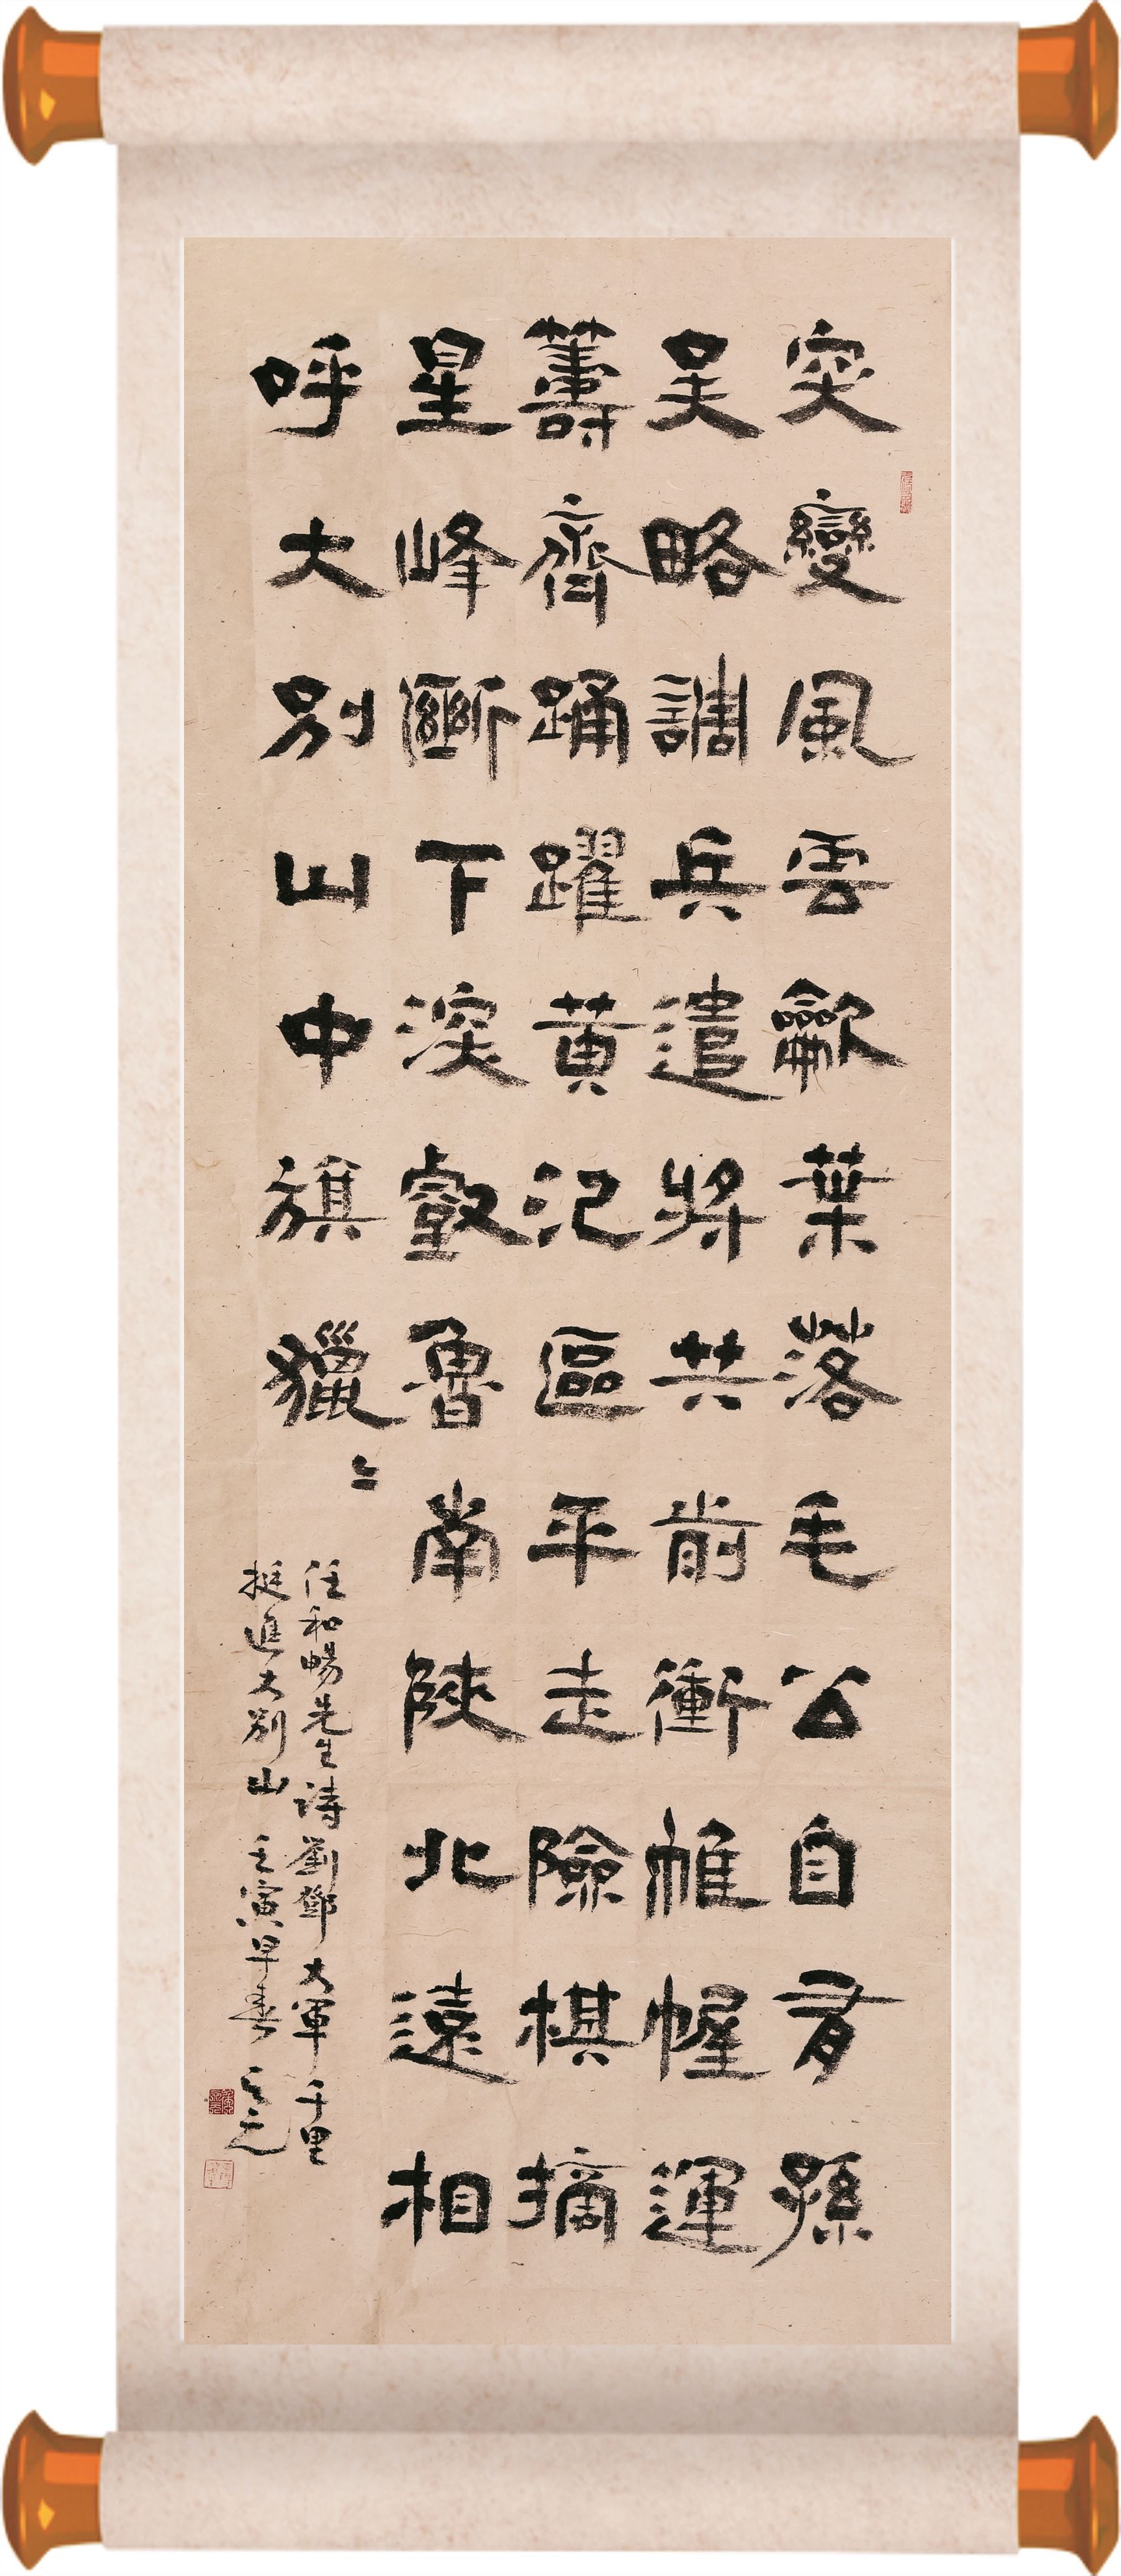 突變風雲歙葉落毛公自有孫
吴略調兵遣將共前衝帷幄運
籌齊踊躍黄汜區平走險棋摘
星峰斷下深叡魯南陝北遠相
呼大别山中旗獵〻
任和暢先生詩劉鄧大軍千里
挺進大别山 壬寅早春